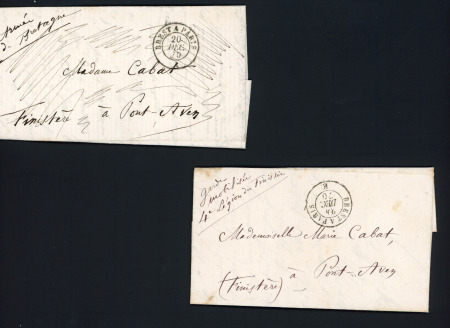 Armée
de Bretagne
BREST A PARIS
20
DÉC.
70
Madame Cabat
Finistère à Pont-Aven
garde
mobilisée
4e Légion du Finistère
BREST A PARIS
DÉC.
70
Mademoiselle Marie Cabat,
(Finistère) à Pont-Aven